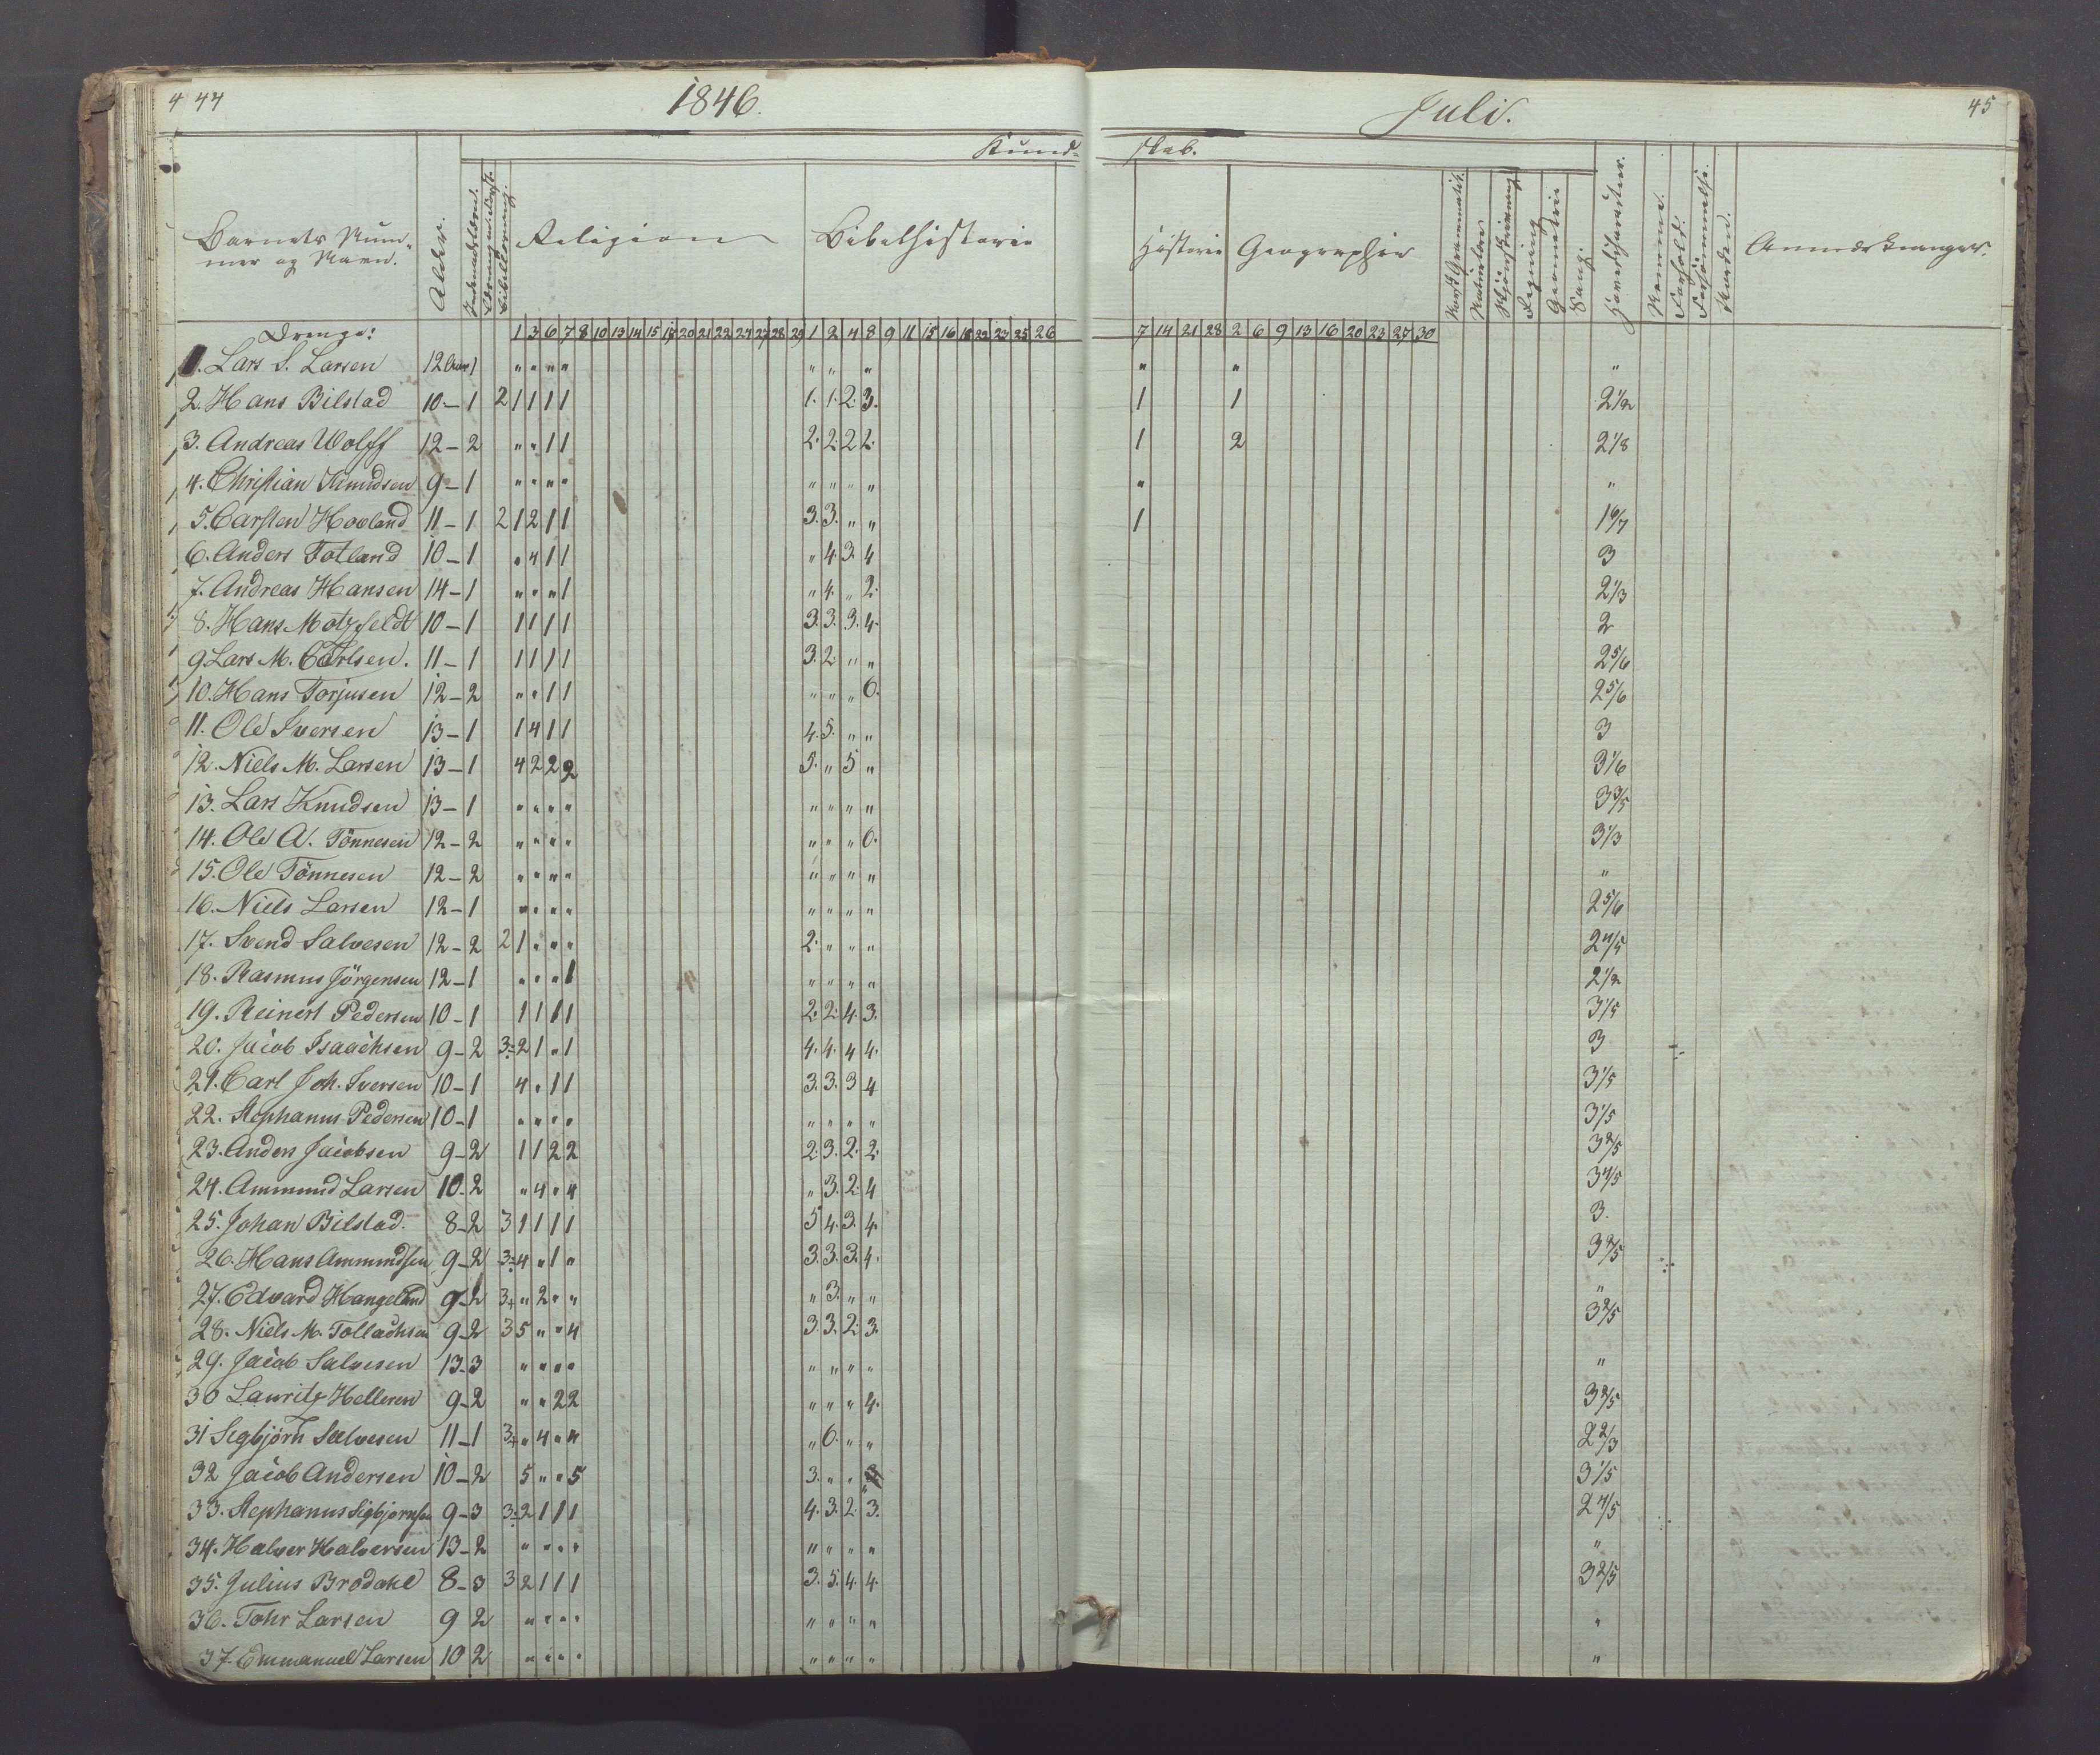 4 44 1846. Juli. 45
Kund- skab.
Barnets Num- Alder. Religion Bibelhistorie Historie Geographie Hovedcharacter. Anmærkninger.
mer og Navn.
Drenge: 1 3 6 7 8 10 13 14 15 17 20 21 22 24 27 28 29 1 2 4 8 9 11 15 16 18 22 23 25 26 7 14 21 28 2 6 9 13 16 20 23 27 30
1. Lars S. Larsen 12 Aar 1 " " " " " " " " " "
2. Hans Bilstad 10 - 1 2 1 1 1 1 1. 1. 2. 3. 1 1 2 1/2
3. Andreas Wolff 12 - 2 " " 1 1 2. 2. 2 2. 1 2 2 1/8
4. Christian Knudsen 9 - 1 " " " " " " " " " "
5. Carsten Hovland 11 - 1 2 1 2 1 1 3. 3. " " 1 1 6/7
6. Anders Totland 10 - 1 " 4 1 1 " 4. 3. 4 3
7. Andreas Hansen 14 - 1 " " " 1 " 4. " 2. 2 1/3
8. Hans Motzfeldt 10 - 1 1 1 1 1 3. 3. 3. 4. 2
9. Lars M. Carlsen. 11 - 1 1 1 1 1 3. 2. " " 2 5/6
10. Hans Torjusen 12 - 2 " " 1 1 " " " 6. 2 5/6
11. Ole Iversen 13 - 1 1 4 1 1 4. 5. " " 3
12. Niels M. Larsen 13 - 1 4 2 2 2 5. " 5 " 3 1/6
13. Lars Knudsen 13 - 1 " " " " " " " " 3 3/5
14. Ole A. Tönnesen 12 - 2 " " " " " " " 6. 3 1/3
15. Ole Tönnesen 12 - 2 " " " " " " " " "
16. Niels Larsen 12 - 1 " " " " " " " " 2 5/6
17. Svend Salvesen 12 - 2 2 1 " " " 2. " " " 2 4/5
18. Rasmus Jörgensen 12 - 1 " " " 1 " " " " 2 1/2
19. Reinert Pedersen 10 - 1 1 1 1 1 2. 2. 4. 3. 3 1/5
20. Jacob Isaachsen 9 - 2 3÷ 2 1 " 1 4. 4. 4 4. 3
21. Carl Joh. Iversen 10 - 1 4 " 1 1 3. 3. 3 4 3 1/5
22. Stephanus Pedersen 10 - 1 " " " " " " " " 3 1/5
23. Anders Jacobsen 9 - 2 1 1 2 2 2. 3. 2. 2. 3 2/5
24. Ammund Larsen 10 - 2 " 4 " 4 " 3. 2. 4 3 4/5
25. Johan Bilstad. 8 - 2 3 1 1 1 1 5 4. 3. 4. 3.
26. Hans Ammundsen 9 - 2 3÷ 4 " 1 " 3. 3. 3. 4. 3 2/5
27. Edvard Hangeland 9 - 2 3+ " 2 " " " 3. " " "
28. Niels M. Tollachsen 9 - 2 3 5 " " 4 3. 3. 2. 3. 3 2/5
29. Jacob Salvesen 13 - 3 " " " " " " " " "
30 Lauritz Helleren 9 - 2 " " 2 2 " " " 4. 3 2/5
31 Segbjørn Salvesen 11 - 1 3+ " 4 " 4 " 6. " " 2 2/3
32 Jacob Andersen 10 - 2 5 " " 5 3. " " 3 1/5
33. Stephanus Sigbjørnsen 9 - 3 3÷ 2 1 1 1 4. 3. 2. 3. 2 4/5
34. Halver Halversen 13 - 2 " " " " " " " " "
35. Julius Brodahl 8 - 3 3 2 1 1 1 3. 5. 4. 4. 3 2/5
36. Tohr Larsen 9 2 " " " " " " " " "
37. Emmanuel Larsen 10 2 " " " " " " " " "